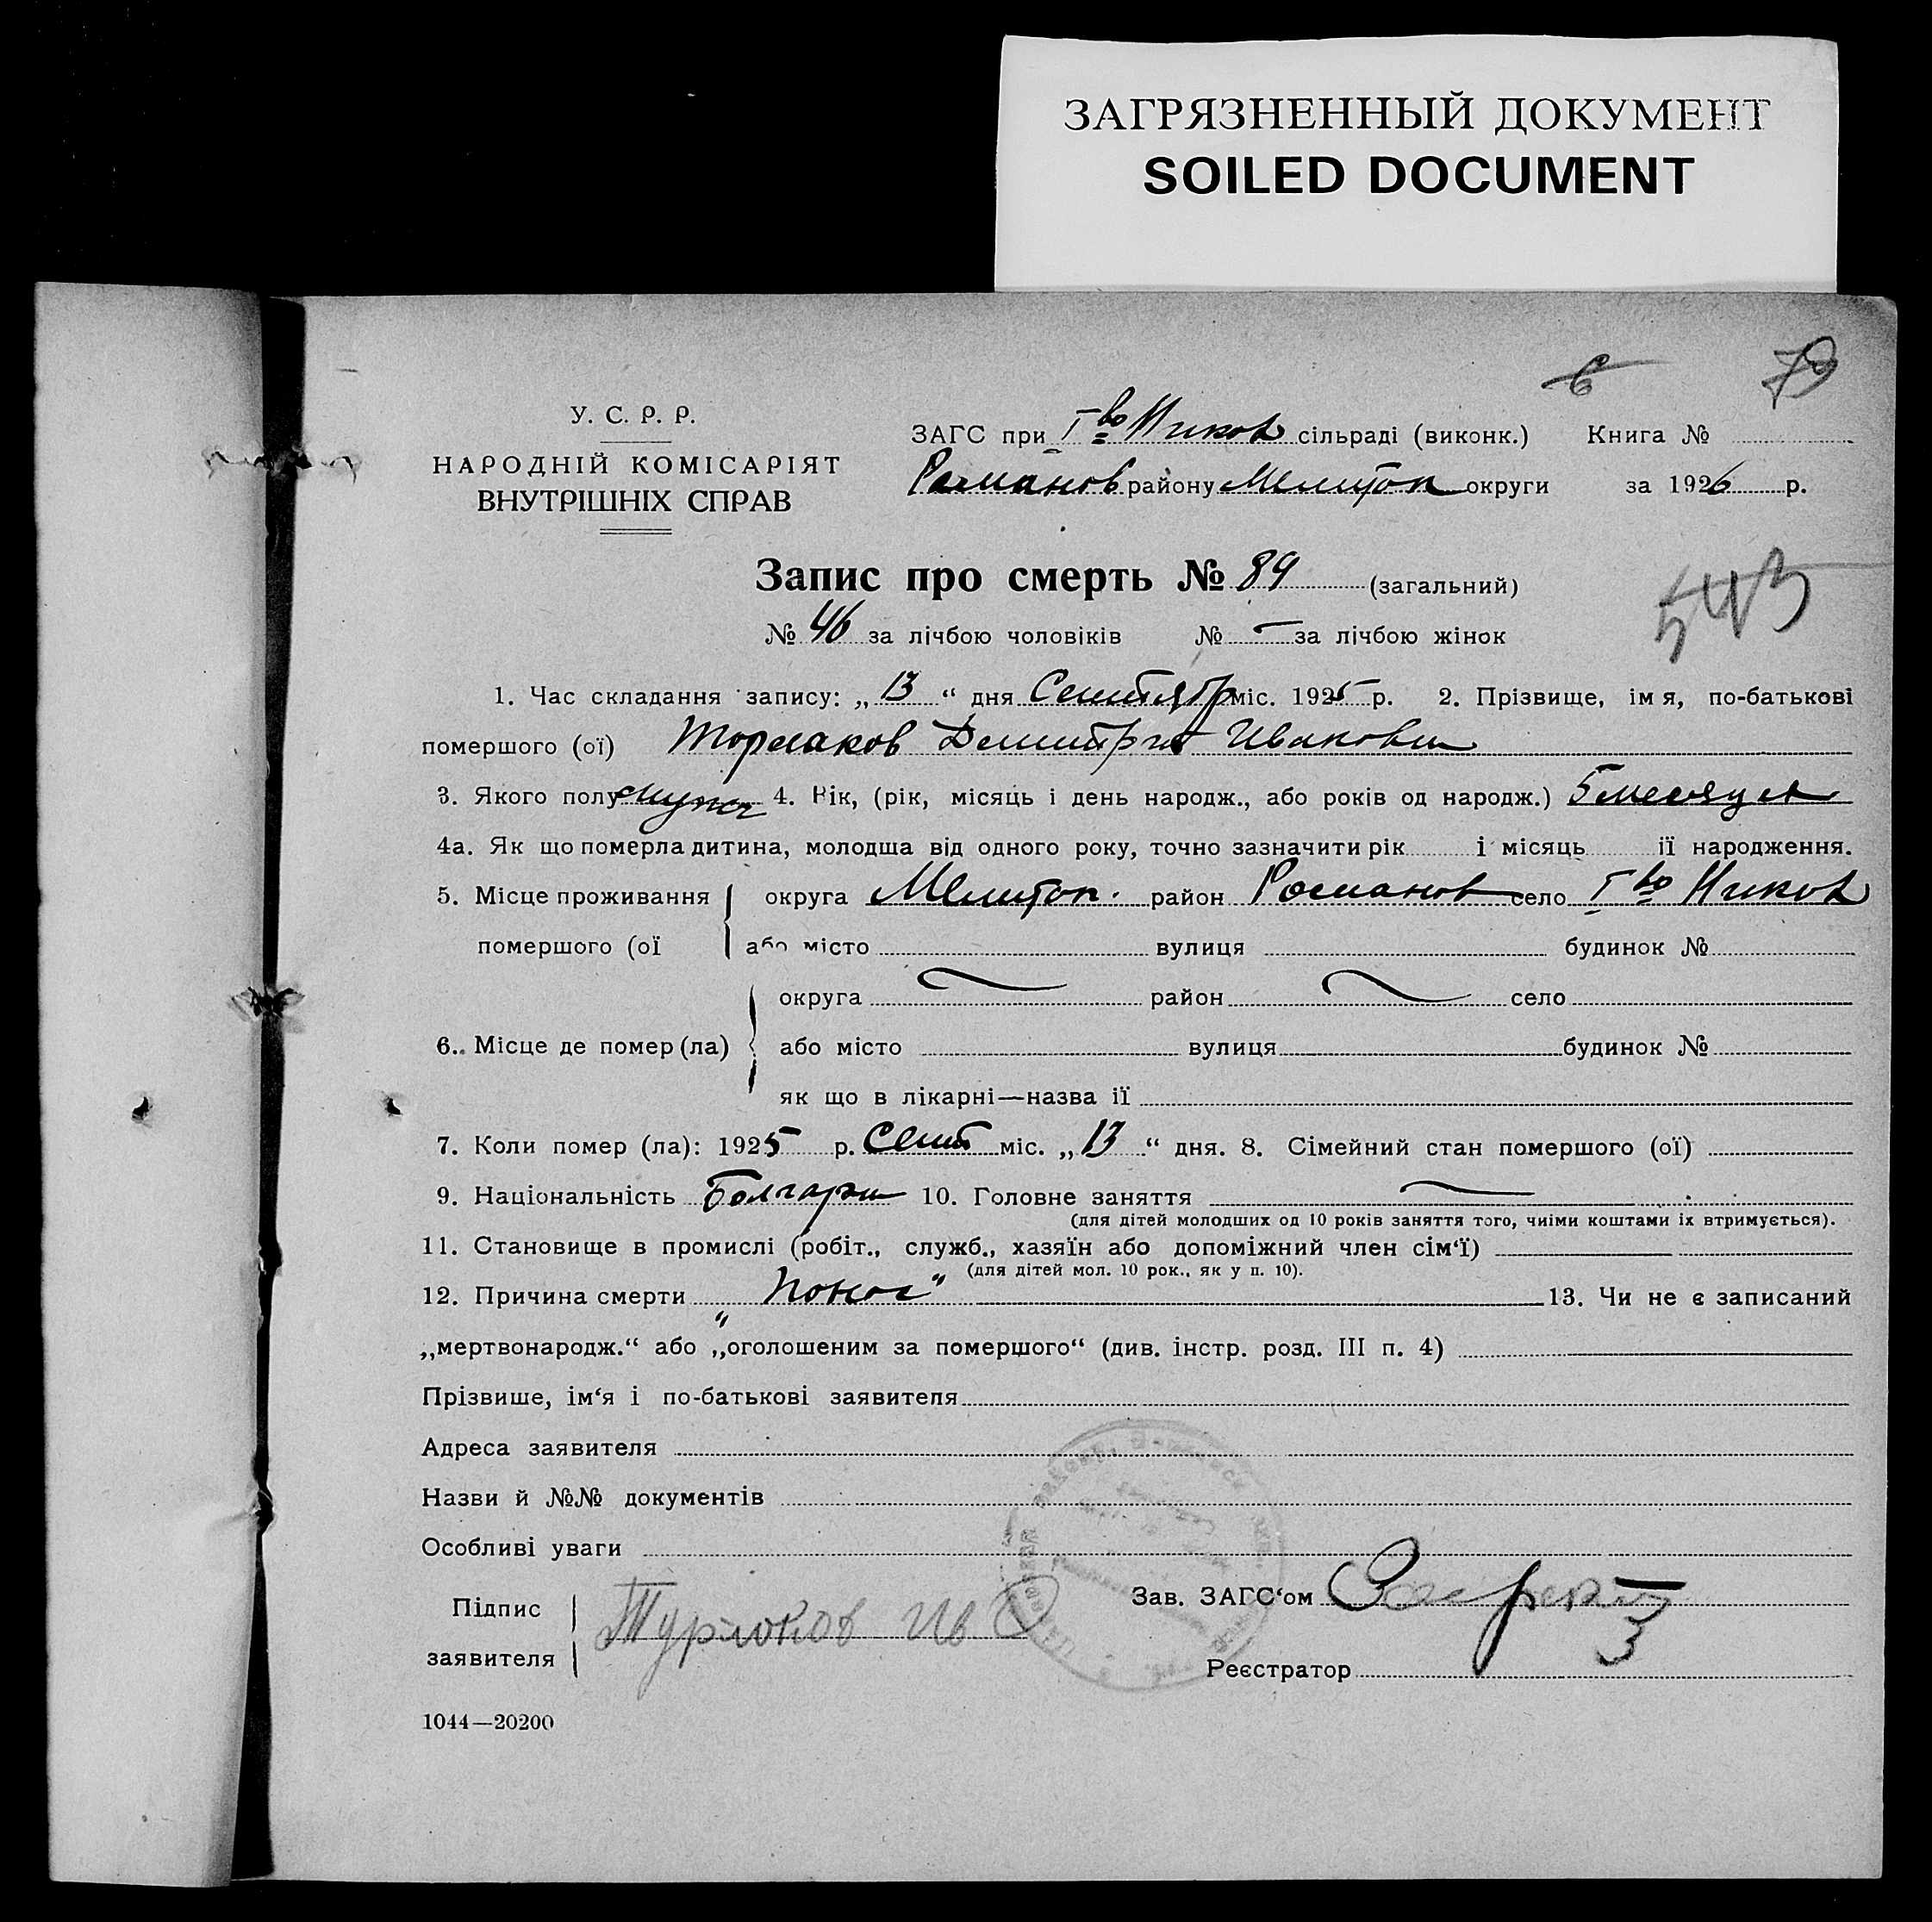 ЗАГРЯЗНЕННЫЙ ДОКУМЕНТ
SOILED DOCUMENT
6 79
У. С. Р. Р.
НАРОДНІЙ КОМІСАРІЯТ
ВНУТРІШНІХ СПРАВ
ЗАГС при І во Ников сільраді (виконк.) Книга №
Романов району Мелитоп округи за 1926 р.
Запис про смерть № 89 (загальний)
543
№ 46 за лічбою чоловіків № — за лічбою жінок
1. Час складання запису: „ 13 “ дня Сентябр міс. 1925 р. 2. Прізвище, імя, по-батькові
помершого (ої) Торлаков Димитрий Иванович
3. Якого полу мужс 4. Вік, (рік, місяць і день народж., або років од народж.) 5 месяцев
4а. Як що померла дитина, молодша від одного року, точно зазначити рік і місяць її народження.
5. Місце проживання округа Мелитоп. район Романов село І во Ников
помершого (ої або місто вулиця будинок №
округа — район — село
6. Місце де помер (ла) або місто вулиця будинок №
як що в лікарні—назва її
7. Коли помер (ла): 1925 р. Сент міс. „ 13 “ дня. 8. Сімейний стан помершого (ої)
9. Національність Болгари 10. Головне заняття —
(для дітей молодших од 10 років заняття того, чиїми коштами їх втримується).
11. Становище в промислі (робіт., служб., хазяїн або допоміжний член сім‘ї)
(для дітей мол. 10 рок., як у п. 10).
12. Причина смерти „Понос“ 13. Чи не є записаний
„мертвонародж.“ або „оголошеним за помершого“ (див. інстр. розд. III п. 4)
Прізвише, ім‘я і по-батькові заявителя
Адреса заявителя
Назви й №№ документів
Особливі уваги
Підпис
заявителя
Турлоков Ив
Зав. ЗАГС‘ом
Реєстратор
1044—20200